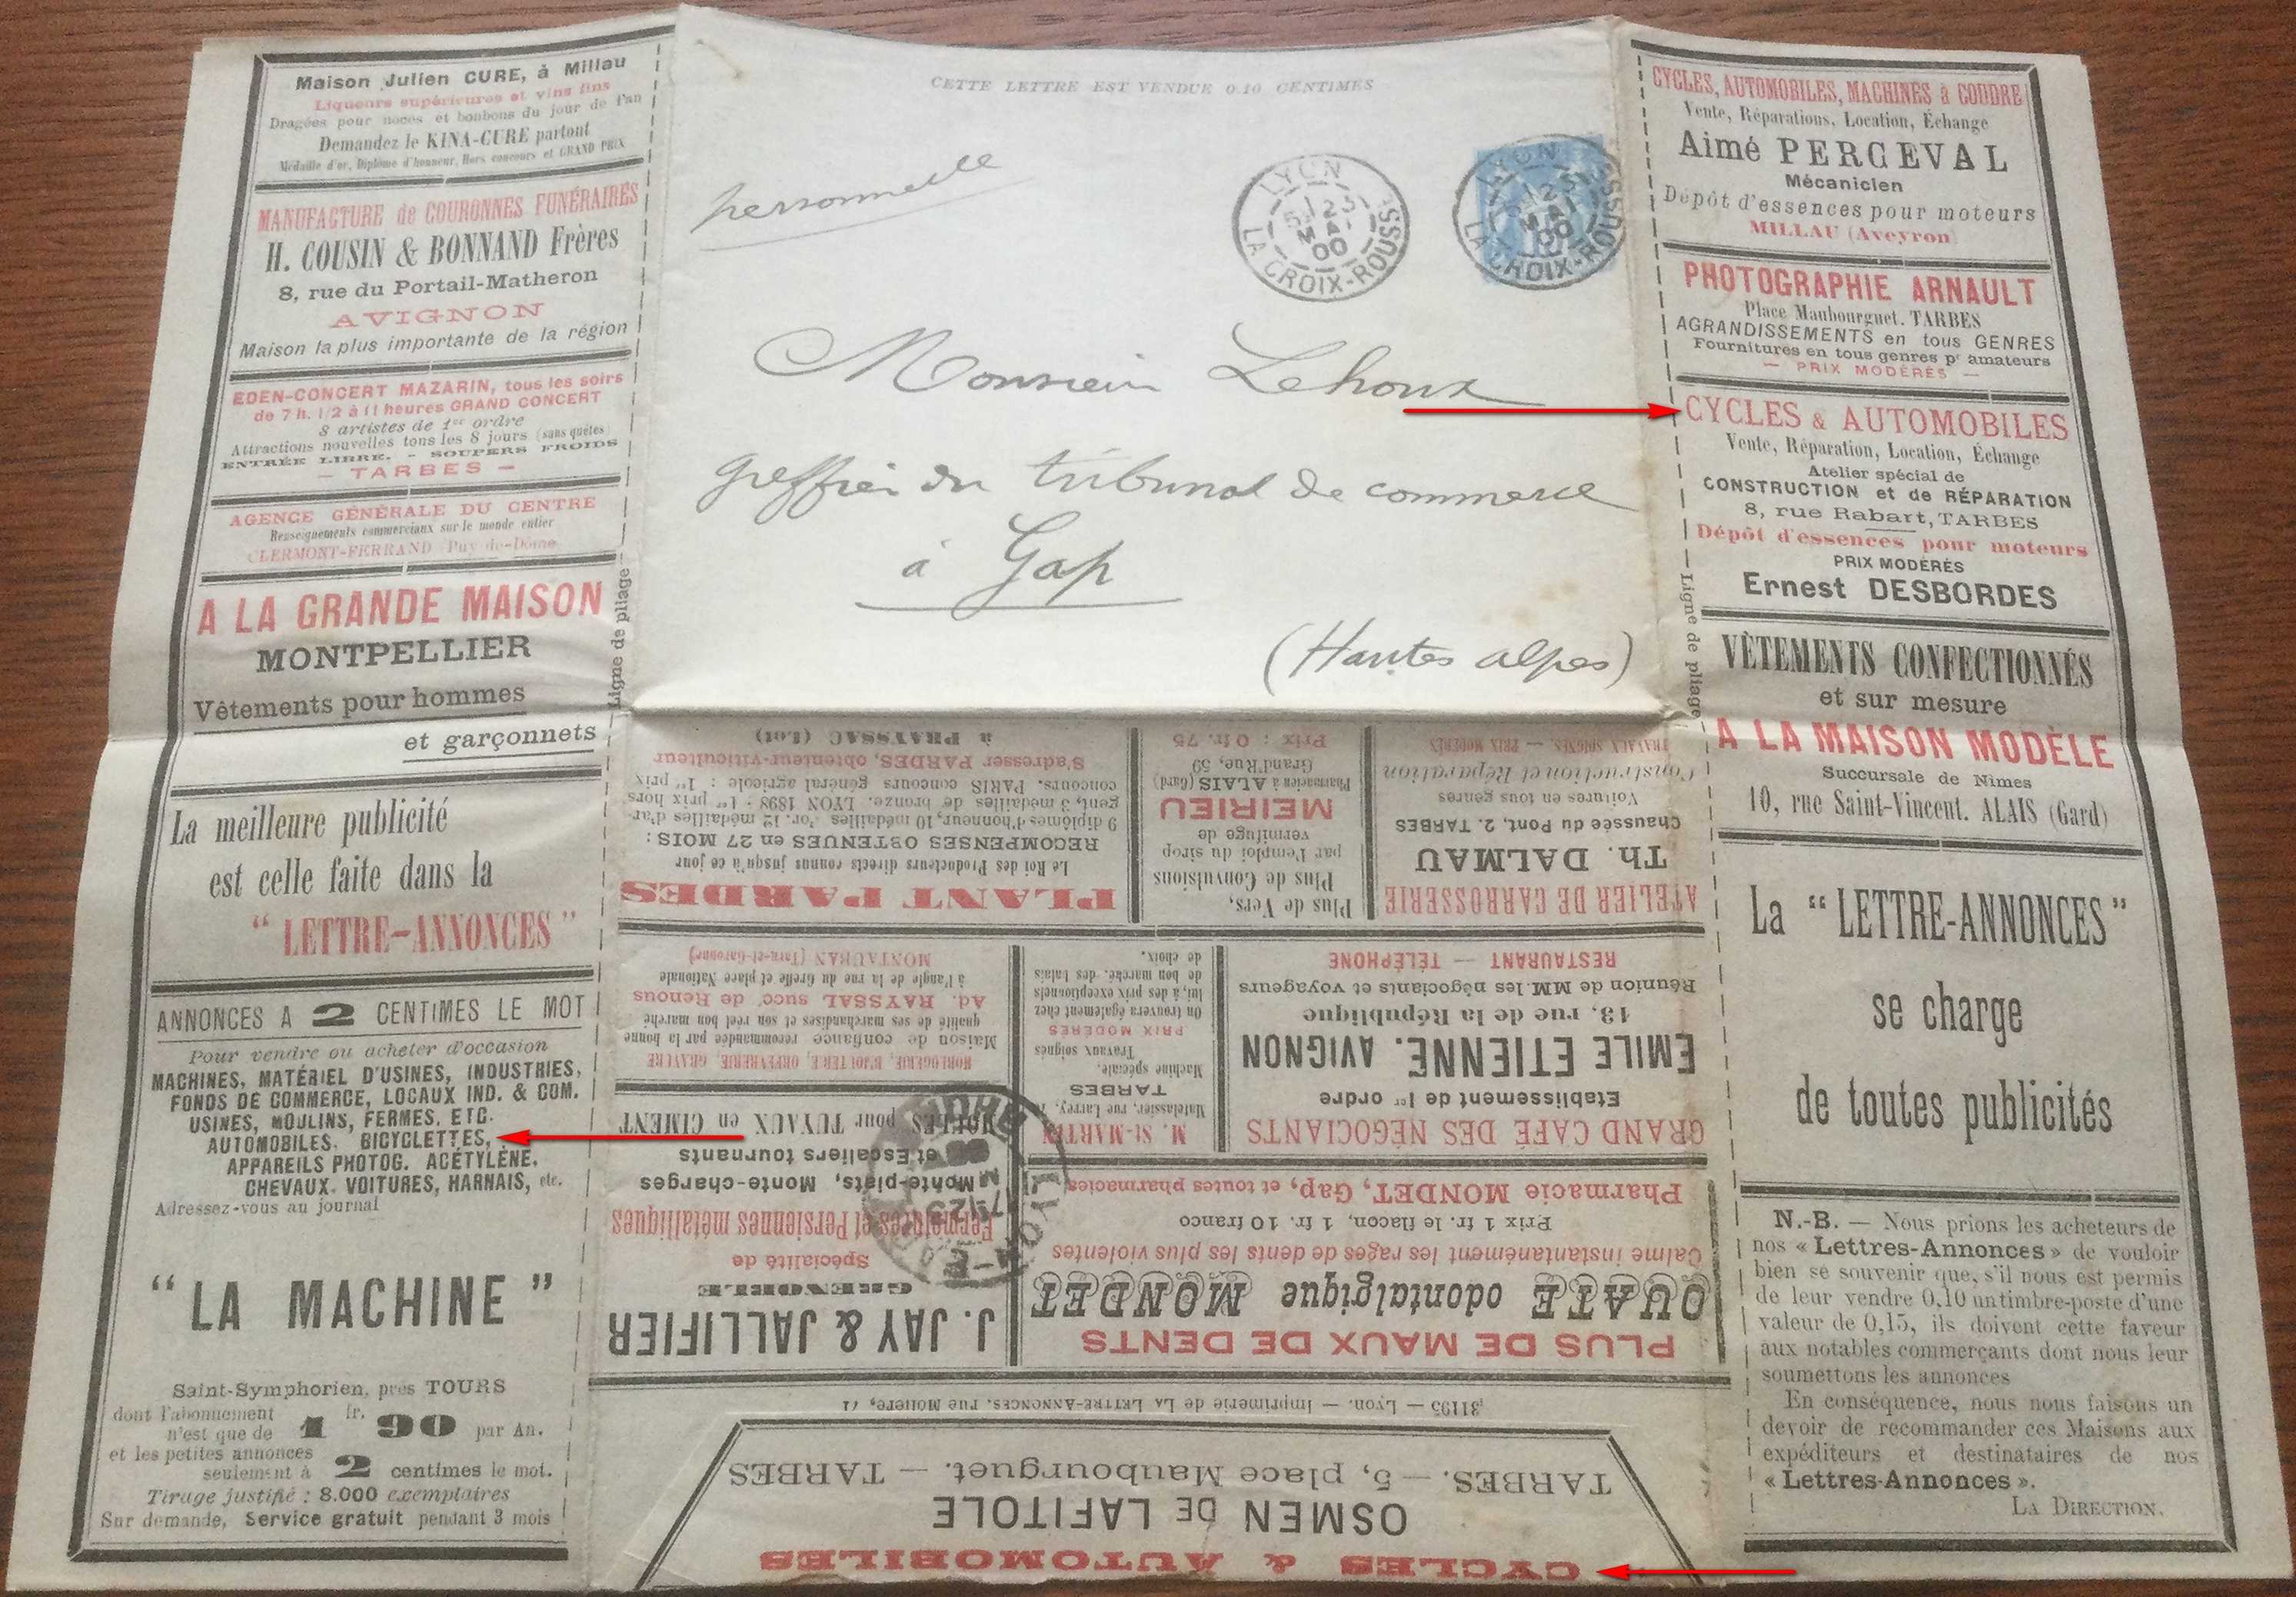 Maison Julien CURE, à Millau
Liqueurs supérieures et vins fins
Dragées pour noces et bonbons du jour de l'an
Demandez le KINA-CURE partout
Médaille d'or, Diplôme d'honneur, Hors concours et GRAND PRIX
MANUFACTURE de COURONNES FUNÉRAIRES
H. COUSIN & BONNAND Frères
8, rue du Portail-Matheron
AVIGNON
Maison la plus importante de la région
EDEN-CONCERT MAZARIN, tous les soirs
de 7 h. 1/2 à 11 heures GRAND CONCERT
8 artistes de 1er ordre
Attractions nouvelles tous les 8 jours (sans quêtes)
ENTRÉE LIBRE. - SOUPERS FROIDS
- TARBES -
AGENCE GÉNÉRALE DU CENTRE
Renseignements commerciaux sur le monde entier
CLERMONT-FERRAND (Puy-de-Dôme
A LA GRANDE MAISON
MONTPELLIER
Vêtements pour hommes
et garçonnets
La meilleure publicité
est celle faite dans la
"LETTRE-ANNONCES"
ANNONCES A 2 CENTIMES LE MOT
Pour vendre ou acheter d'occasion
MACHINES, MATÉRIEL D'USINES, INDUSTRIES,
FONDS DE COMMERCE, LOCAUX IND. & COM.
USINES, MOULINS, FERMES, ETC.
AUTOMOBILES, BICYCLETTES,
APPAREILS PHOTOG. ACÉTYLÈNE,
CHEVAUX, VOITURES, HARNAIS, etc.
Adressez-vous au journal
"LA MACHINE"
Saint-Symphorien, près TOURS
dont l'abonnement
n'est que de 1 fr. 90 par An.
et les petites annonces
seulement à 2 centimes le mot.
Tirage justifié : 8.000 exemplaires
Sur demande, Service gratuit pendant 3 mois
Ligne de pliage
CETTE LETTRE EST VENDUE 0.10 CENTIMES
personnelle
LYON
LA CROIX-ROUSSE
23
MAI
00
LYON
LA CROIX-ROUSSE
Monsieur Lehoux
greffier du tribunal de commerce
à Gap
(Hautes alpes)
Ligne de pliage
CYCLES, AUTOMOBILES, MACHINES à COUDRE
Vente, Réparations, Location, Échange
Aimé PERCEVAL
Mécanicien
Dépôt d'essences pour moteurs
MILLAU (Aveyron)
PHOTOGRAPHIE ARNAULT
Place Maubourguet. TARBES
AGRANDISSEMENTS en tous GENRES
Fournitures en tous genres pr amateurs
— PRIX MODÉRÉS —
CYCLES & AUTOMOBILES
Vente, Réparation, Location, Échange
Atelier spécial de
CONSTRUCTION et de RÉPARATION
8, rue Rabart, TARBES
Dépôt d'essences pour moteurs
PRIX MODÉRÉS
Ernest DESBORDES
VÊTEMENTS CONFECTIONNÉS
et sur mesure
A LA MAISON MODÈLE
Succursale de Nimes
10, rue Saint-Vincent. ALAIS (Gard)
La "LETTRE-ANNONCES"
se charge
de toutes publicités
N.-B. — Nous prions les acheteurs de
nos « Lettres-Annonces » de vouloir
bien se souvenir que, s'il nous est permis
de leur vendre 0,10 un timbre-poste d'une
valeur de 0,15, ils doivent cette faveur
aux notables commerçants dont nous leur
soumettons les annonces
En conséquence, nous nous faisons un
devoir de recommander ces Maisons aux
expéditeurs et destinataires de nos
« Lettres-Annonces ».
LA DIRECTION.
CYCLES & AUTOMOBILES
OSMEN DE LAFITOLE
TARBES. — 5, place Maubourguet. — TARBES
31195 — Lyon. — Imprimerie de LA LETTRE-ANNONCES, rue Molière, 71
PLUS DE MAUX DE DENTS
OUATE odontalgique MONDET
Calme instantanément les rages de dents les plus violentes
Prix 1 fr. le flacon, 1 fr. 10 franco
Pharmacie MONDET, Gap, et toutes pharmacies
J. JAY & JALLIFIER
GRENOBLE
Spécialité de
Fermetures et Persiennes métalliques
Monte-plats, Monte-charges
et Escaliers tournants
MOULES pour TUYAUX en CIMENT
LYON
GRAND CAFÉ DES NÉGOCIANTS
Etablissement de 1er ordre
EMILE ETIENNE. AVIGNON
13, rue de la République
Réunion de MM. les négociants et voyageurs
RESTAURANT — TÉLÉPHONE
M. St-MARTIN
Matelassier, rue Larrey,
TARBES
Machine spéciale.
Travaux soignés
PRIX MODÉRÉS
On trouvera également chez
lui, à des prix exceptionnels
de bon marché, des balais
de choix.
HORLOGERIE, BIJOUTERIE, ORFÈVRERIE, GRAVURE
Maison de confiance recommandée par la bonne
qualité de ses marchandises et son réel bon marché
Ad. RAYSSAL succ. de Renous
à l'angle de la rue du Greffe et place Nationale
MONTAUBAN (Tarn-et-Garonne)
ATELIER DE CARROSSERIE
Th. DALMAU
Chaussée du Pont, 2. TARBES
Voitures en tous genres
Construction et Réparation
TRAVAUX SOIGNÉS. — PRIX MODÉRÉS
Plus de Vers,
Plus de Convulsions
par l'emploi du sirop
vermifuge de
MEIRIEU
Pharmacien à ALAIS (Gard)
Grand'Rue, 59
Prix : 0 fr. 75
PLANT PARDES
Le Roi des Producteurs directs connus jusqu'à ce jour
RECOMPENSES OBTENUES en 27 MOIS :
9 diplômes d'honneur, 10 médailles d'or, 12 médailles d'ar-
gent, 3 médailles de bronze. LYON 1898 : 1er prix hors
concours. PARIS concours général agricole : 1er prix
S'adresser PARDES, obtenteur-viticulteur
à PRAYSSAC (Lot)